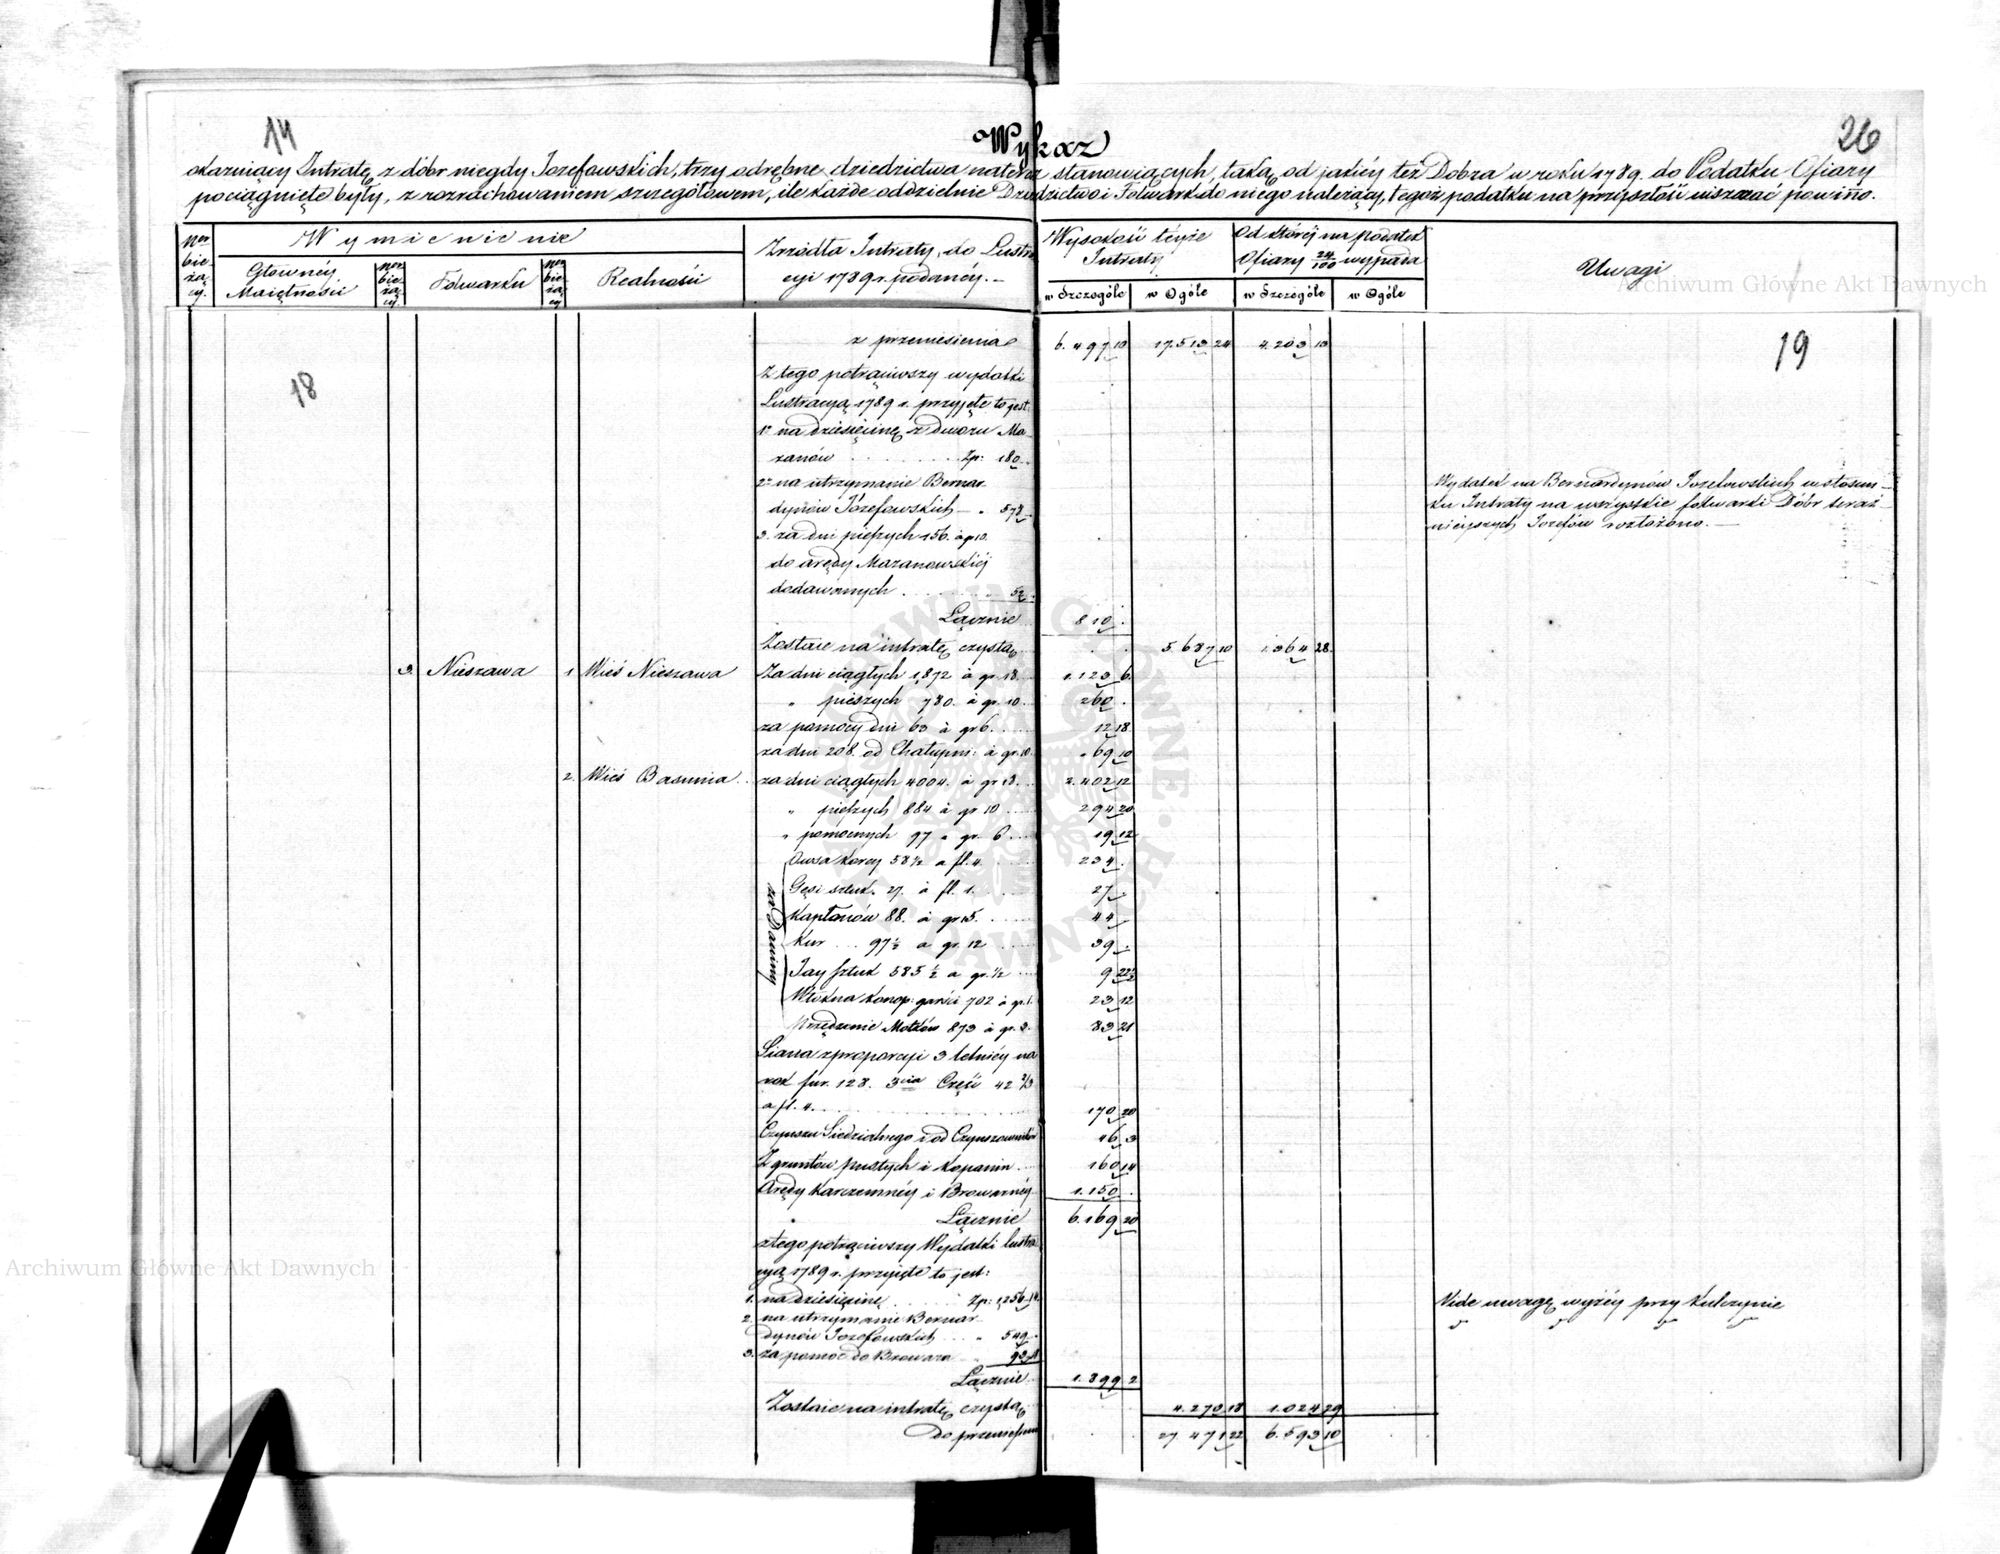 14
26
Wykaz
okazuiący Intratę z dóbr niegdy Jozefowskich, trzy odrębne dziedzictwa nateraz stanowiących, taką od jakiéy też Dobra w roku 1789. do Podatku Ofiary
pociągnięte były, z rozrachowaniem szczegółowem, ile każde oddzielnie Dziedzictwo i Folwark do niego należący, tegoż podatku na przyszłość uiszczać powinno.
Ner bie żą cy.
Wymienienie
Główney Maiętności
Ner bie żą cy
Folwarku
Ner bie żą cy
Realności
Zrzódła Intraty, do Lustra
cyi 1789 r. podaney. —
Wysokość téyże Intraty
w Szczególe
w Ogóle
Od któréy na podatek
Ofiary 24/100 wypada
w Szczególe
w Ogóle
Uwagi
18
19
z przeniesienia 6.497 10 17.513 24 4.203 10
Z tego potrąciwszy wydatki
Lustracyą 1789 r. przyjęte to jest:
1o na dziesięcinę z dworu Ma-
zanów . . . Zp: 180.
2o na utrzymanie Bernar-
dynów Józefowskich — „ 578
Wydatek na Bernardynów Jozefowskich w stosun-
ku Intraty na wszystkie folwarki Dóbr teraź-
nieyszych Jozefów rozłożono. —
3. za dni pieszych 156. à gr 10.
do arędy Mazanowskiéj
dodawanych . . . 52.
Łącznie 810.
Zostaie na intratę czystą 5.687 10 1.364 28
3. Nieszawa 1 Wieś Nieszawa Za dni ciągłych 1,872 à gr 18. 1.123 6.
„ pieszych 780. à gr. 10. 260.
za pomocy dni 63 à gr 6. 12 18
za dni 208. od Chałupni: à gr. 10. 69 10
2. Wieś Basunia za dni ciągłych 4004. à gr 18. 2.402 12
„ pieszych 884 à gr 10 294 20
„ pomocnych 97 à gr. 6. 19 12
za Daniny
Owsa korcy 58 1/2 a fl. 4. 234.
Gęsi sztuk. 27. à fl. 1. 27.
Kapłonów 88. à gr 15. 44
Kur ... 97 1/2 a gr. 12 39.
Jay sztuk 585 1/2 a gr. 1/2 9 22 1/2
Włókna konop: garści 702 à gr. 1. 23 12
Przędzenie Motków 873 à gr. 3. 83 21
Siana z proporcyi 3 letniéy na
rok fur. 128. 3cia Część 42 2/3
a fl. 4. 170 20
Czynszu Siedzialnego i od Czynszowników 46 3
Z gruntów pustych i kopanin 160 14
Arędy Karczemnéy i Browarnéy 1.150.
Łącznie 6.169 20
z tego potrąciwszy Wydatki lustra
cyą 1789 r. przyjęte to jest:
1. na dziesięcinę Zp: 1256 14
Vide uwagę wyżéy przy Kulczynie
2. na utrzymanie Bernar-
dynów Jozefowskich ... „ 549.
3. za pomoc do Browara 93 18
Łącznie 1.899 2
Zostaie na intratę czystą 4.270 18 1.024 29
Do przeniesienia 27.471 22 6.593 10
Archiwum Główne Akt Dawnych
Archiwum Główne Akt Dawnych